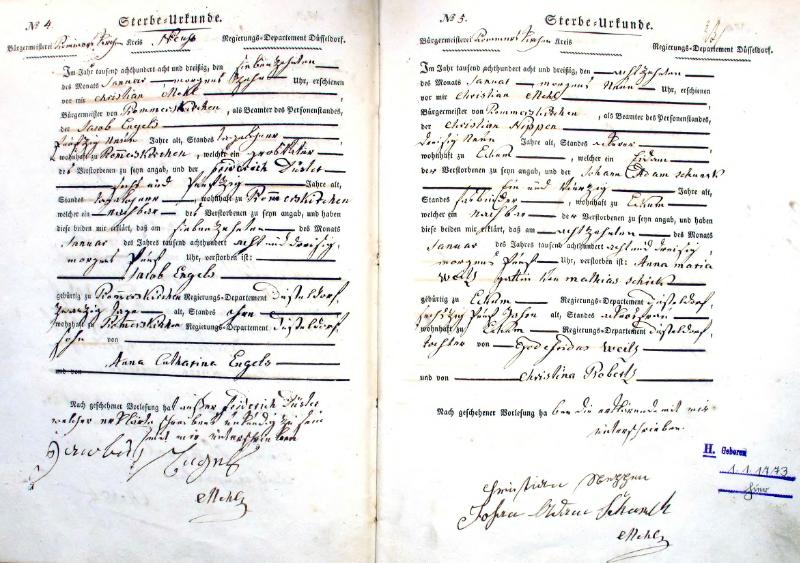 No 4.
Sterbe-Urkunde.
Bürgermeisterei Rommerskirchen Kreis Neuss Regierungs-Departement Düsseldorf.
Im Jahr tausend achthundert acht und dreißig, den siebenzehnten
des Monats Januar morgens Zehn Uhr, erschienen
vor mir Christian Mehl
Bürgermeister von Rommerskirchen, als Beamter des Personenstandes,
der Jacob Engels
fünfzig Neun Jahre alt, Standes tagelöhner
wohnhaft zu Romerskirchen, welcher ein großvater
des Verstorbenen zu seyn angab, und der Friderich Düster
sechs und fünfzig Jahre alt,
Standes tagelöhner, wohnhaft zu Rommerskirchen
welcher ein nachbar des Verstorbenen zu seyn angab, und haben
diese beiden mir erklärt, daß am siebenzehnten des Monats
Januar des Jahres tausend achthundert acht und dreisig,
morgens fünf Uhr, verstorben ist:
Jacob Engels
gebürtig zu Rommerskirchen Regierungs-Departement Düsseldorf,
zwanzig tage alt, Standes ohne
wohnhaft zu Romerskirchen Regierungs-Departement Düsseldorf
sohn von
Anna Catharina Engels
und von
Nach geschehener Vorlesung hat außer Friderich Düster
welcher erklärte schreibens unkundig zu sein
mit mir unterschrieben
Jacob Engels
Mehl
No 5.
Sterbe-Urkunde.
Bürgermeisterei Rommerskirchen Kreis
Regierungs-Departement Düsseldorf.
Im Jahr tausend achthundert acht und dreißig, den achtzehnten
des Monats Januar morgens Neun Uhr, erschienen
vor mir Christian Mehl
Bürgermeister von Rommerskirchen, als Beamter des Personenstandes,
der Christian Nippen
dreisig Neun Jahre alt, Standes ackerer
wohnhaft zu Eckum, welcher ein Eidam
der Verstorbenen zu seyn angab, und der Johann Adam schunck
ein und vierzig Jahre alt,
Standes faßbinder, wohnhaft zu Eckum
welcher ein Nachbar der Verstorbenen zu seyn angab, und haben
diese beiden mir erklärt, daß am achtzehnten des Monats
Januar des Jahres tausend achthundert acht und dreisig,
morgens fünf Uhr, verstorben ist: Anna maria
Weitz gattin von mathias schieks
gebürtig zu Eckum Regierungs-Departement Düsseldorf,
sechszig fünf Jahre alt, Standes ackersfrau
wohnhaft zu Eckum Regierungs-Departement Düsseldorf
tochter von Godefridus Weitz
und von Christina Robertz
Nach geschehener Vorlesung haben die erklärende mit mir
unterschrieben
Christian Neppen
Johan Adam Schunck
Mehl
H. Geboren
1.1.1773
hier